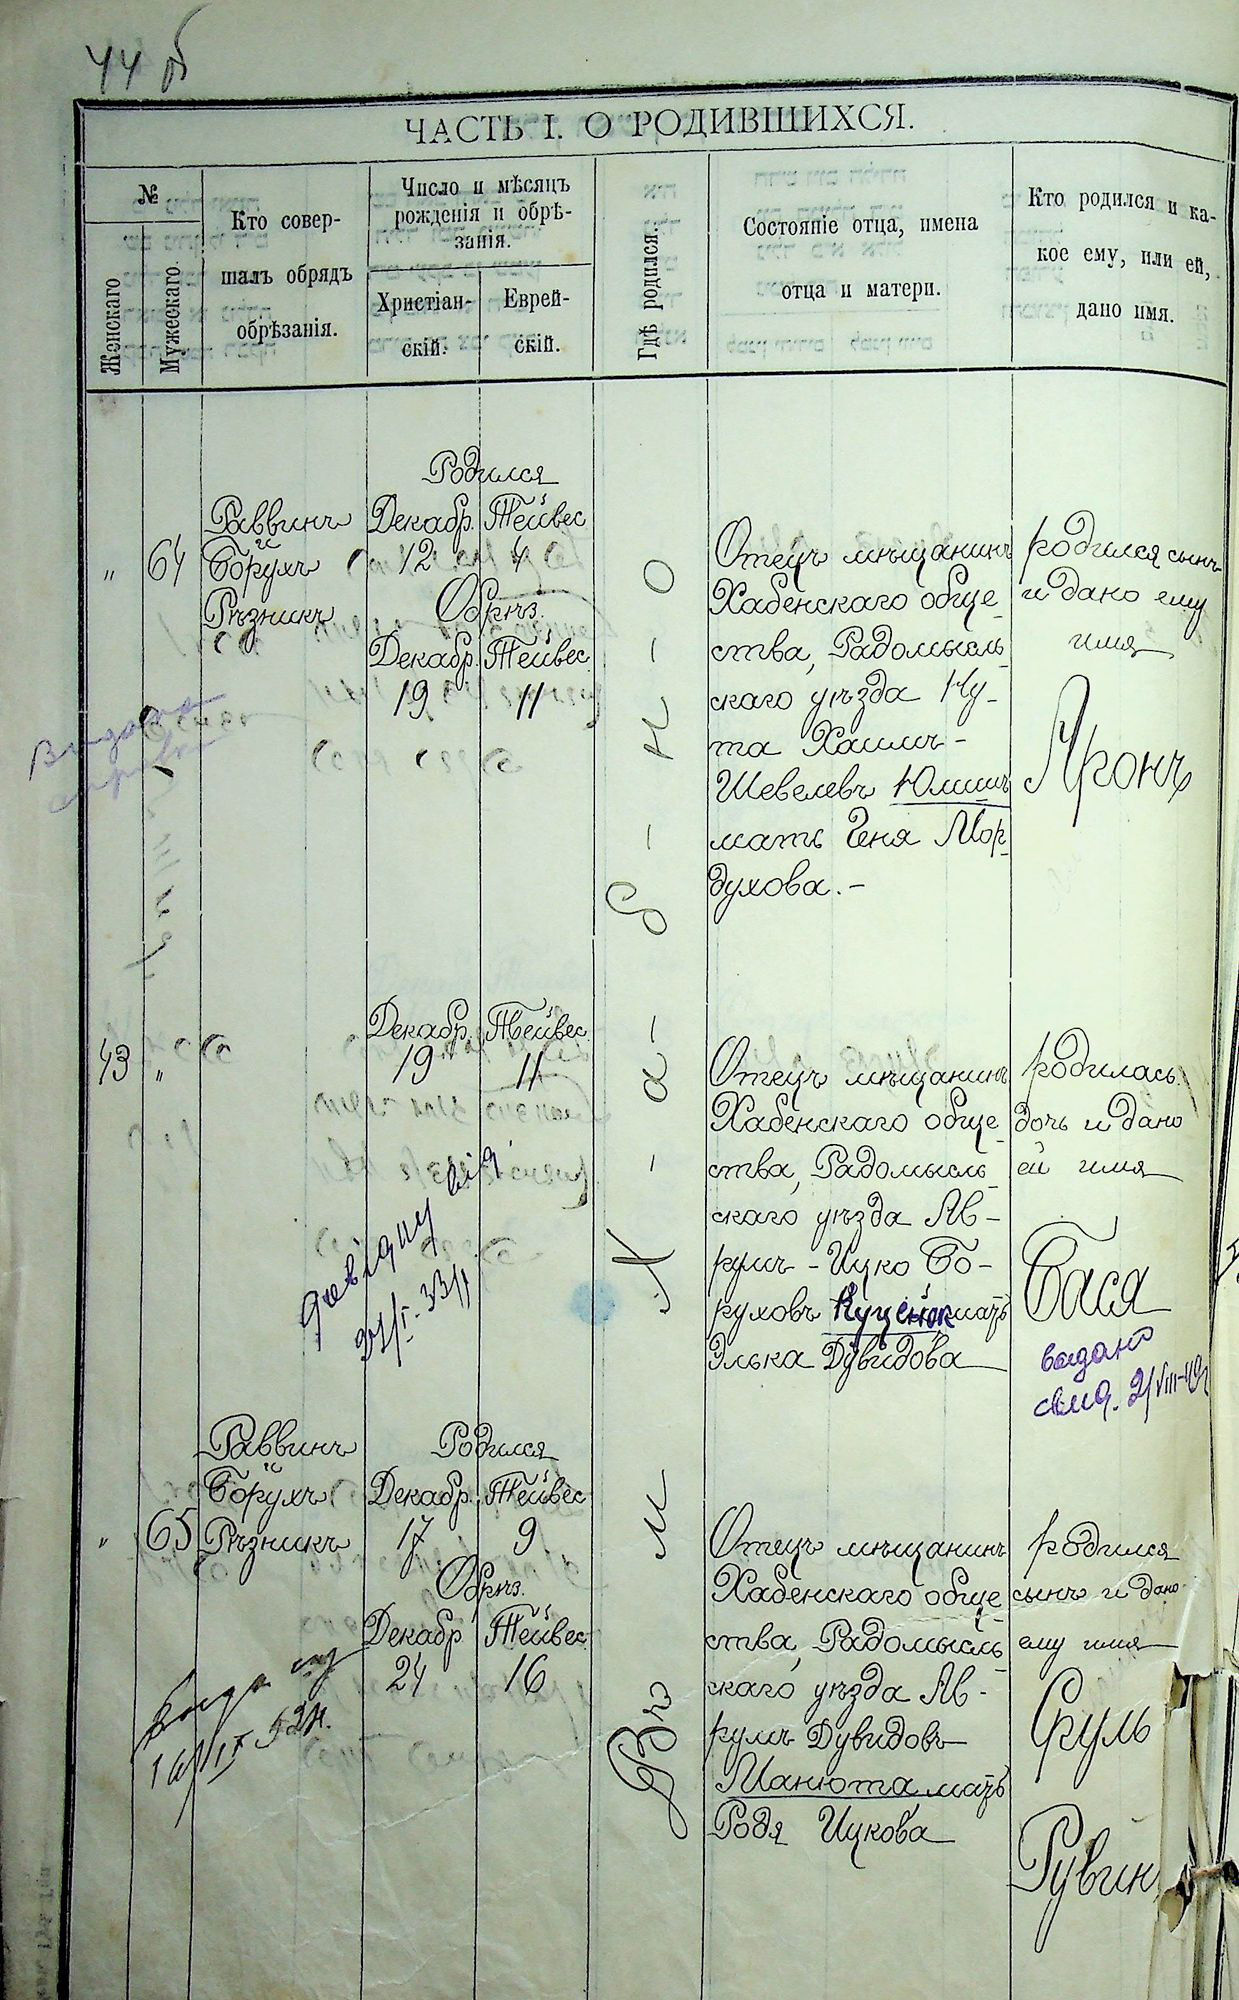 44 об
ЧАСТЬ I. О РОДИВШИХСЯ.
№
Женскаго
Мужескаго.
Кто совер-
шалъ обрядъ
обрѣзанія.
Число и мѣсяцъ
рожденія и обрѣ-
занія.
Христіан-
скій.
Еврей-
скій.
Гдѣ родился.
Состояніе отца, имена
отца и матери.
Кто родился и ка-
кое ему, или ей,
дано имя.
Въ м. Х-а-б-н-о
„
64
Раввинъ
Борухъ
Рѣзникъ
Родился
Декабр. Тейвес
12 4
Обрѣз.
Декабр. Тейвес
19 11
Отецъ мѣщанинъ
Хабенскаго обще
ства, Радомысль
скаго уѣзда Ну-
та Хаимъ-
Шевелевъ Юшин
мать Геня Мор-
духова.-
родился сынъ
и дано ему
имя
Аронъ
Видана
справка
43
„
Декабр. Тейвес
19 11
Отецъ мѣщанинъ
Хабенскаго обще
ства, Радомысль
скаго уѣзда Ав-
румъ-Ицко Бо-
руховъ Куценок мать
Элька Дувидова
родилась
дочь и дано
ей имя
Бася
видано
свид. 21/VIII-40г
21/I-33 р
„
65
Раввинъ
Борухъ
Рѣзникъ
Родился
Декабр. Тейвес
17 9
Обрѣз.
Декабр Тейвес
24 16
Отецъ мѣщанинъ
Хабенскаго обще
ства, Радомысль
скаго уѣзда Ав-
румъ Дувидовъ
Манюта мать
Родя Ицкова
родился
сынъ и дано
ему имя
Сруль
Рувин